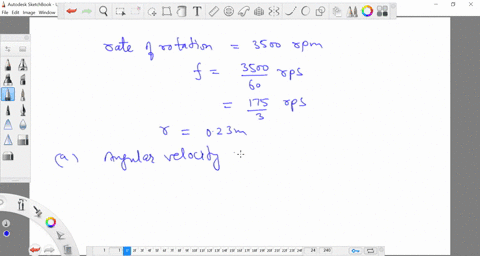 Autodesk SketchBook - Allow
rate of rotation = 3500 rpm
f = 3500/60 rps
= 175/3 rps
r = 0.23m
(a) Angular velocity